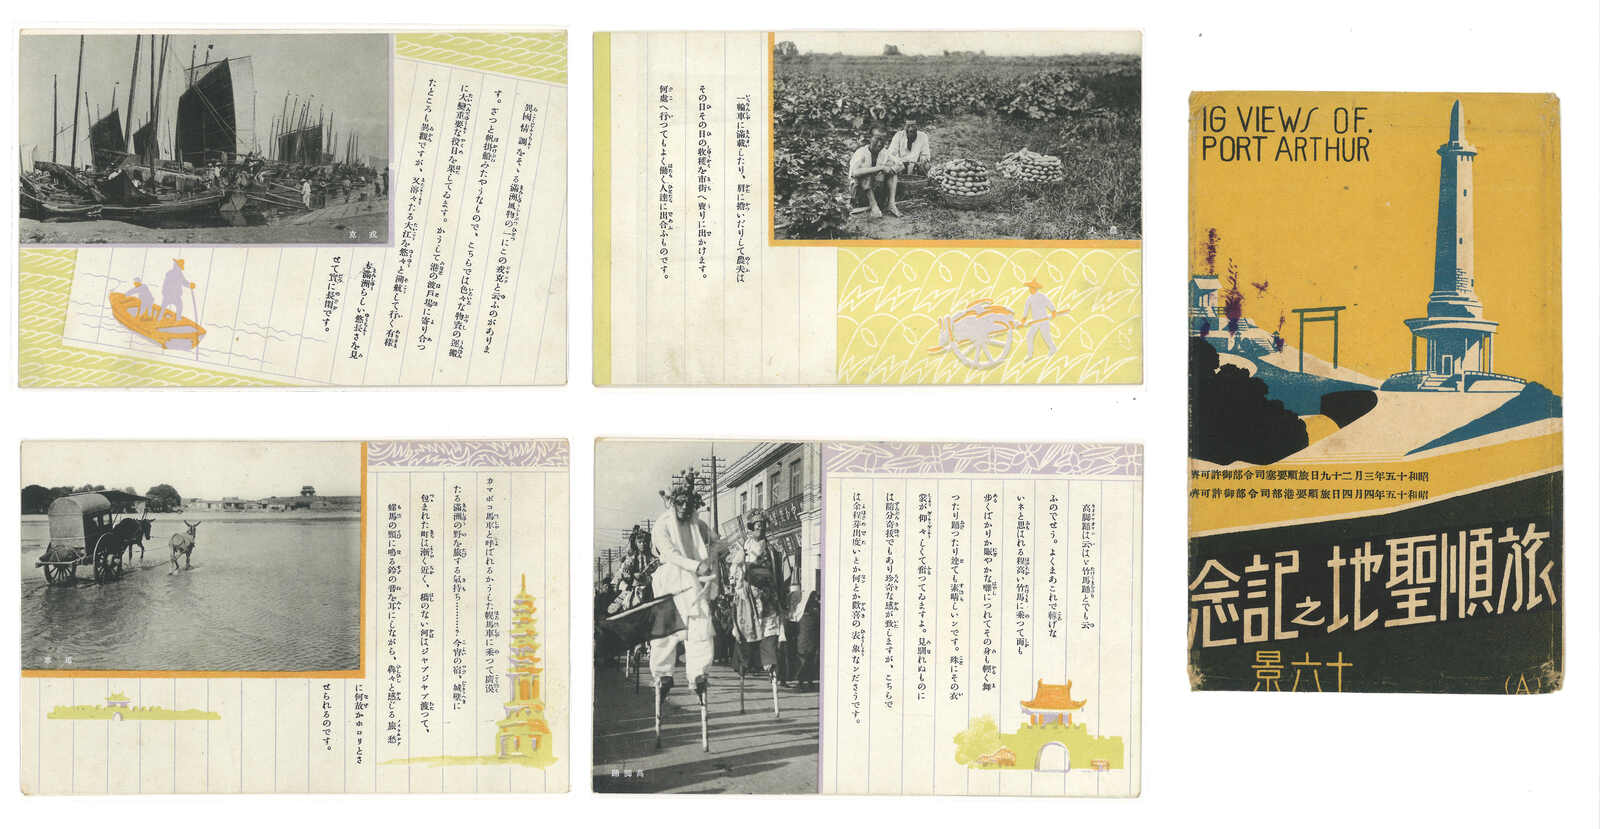 異國情調をそゝる滿洲風物の一にこの戎克と云ふのがありま
す。ざつと帆掛船みたやうなもので、こちらでは色々な物資の運搬
に大變重要な役目を果してゐます。かうして港の渡戸場に寄り合つ
たところも異觀ですが、又溶々たる大江を悠々と溯航して行く有樣
も滿洲らしい悠長さを見
せて實に長閑です。
戎克
一輪車に滿載したり、肩に擔いだりして農夫は
その日その日の收穫を市街へ賣りに出かけます。
何處へ行つてもよく働く人達に出合ふものです。
農夫
カマボコ馬車と呼ばれるかうした幌馬車に乘つて廣漠
たる滿洲の野を旅する氣持ち………？今宵の宿、城壁に
包まれた町は漸く近く、橋のない河はジヤブジヤブ渡つて、
騾馬の頸に鳴る鈴の音を耳にしながら、犇々と感じる旅愁
に何故かホロリとさ
せられるのです。
高脚踊は云はゞ竹馬踊とでも云
ふのでせう。よくまあこれで轉げな
いネと思はれる程高い竹馬に乘つて而も
歩くばかりか賑やかな囃につれてその身も輕く舞
つたり踊つたり迚ても素晴しいンです。殊にその衣
裳が仰々しくて奮つてゐますよ。見馴れぬものに
は隨分奇拔でもあり珍奇な感が致しますが、こちらで
は余程芽出度いとか何とか歡喜の表象なンださうです。
高脚踊
16 VIEWS OF.
PORT ARTHUR
昭和十五年三月二十九日旅順要塞司令部御許可濟
昭和十五年四月四日旅順要港部司令部御許可濟
旅順聖地之記念
十六景
(A)